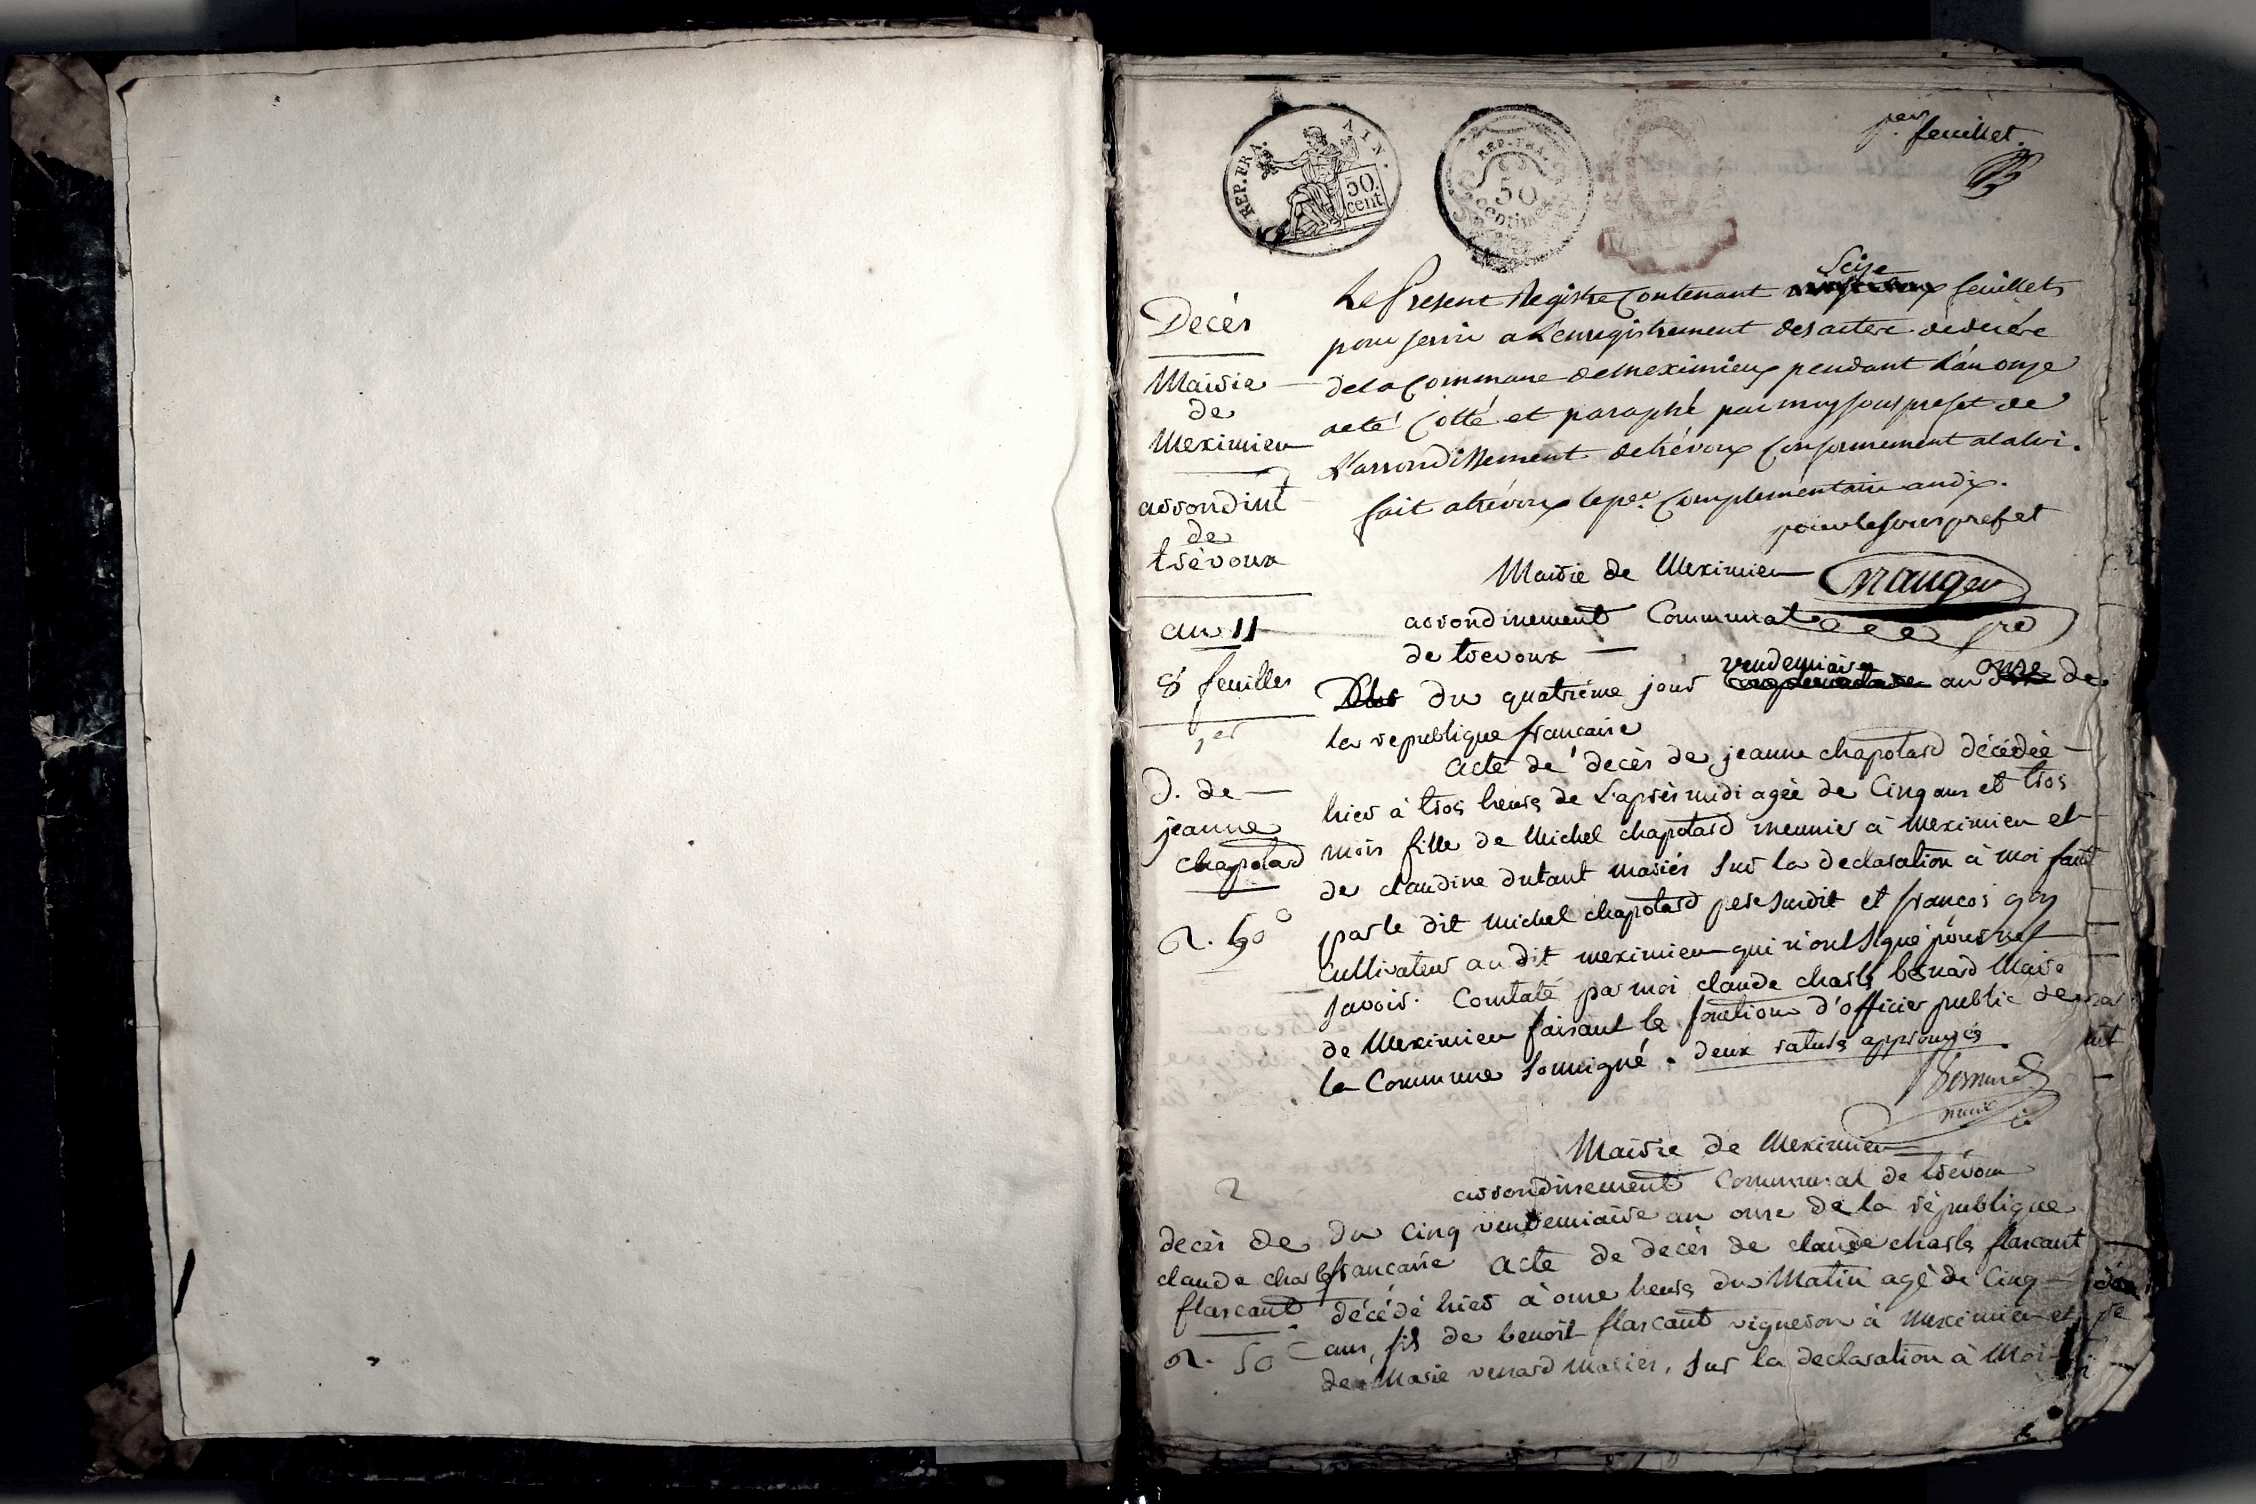 REP. FRA. AIN.
50 cent
REP. FRA.
50 centimes
per feuillet.
Décès
Mairie
de
Meximieu
arrondint
de
trévoux
an 11
8 feuilles
1er
Seize
Le Present Registre Contenant feuillets
pour servir a L'enregistrement des actes de décés
de la Commune de meximieux pendant L'an onze
acté Cotté et paraphé par moy sous prefet de
L'arrondissement de trévoux Conformement a la loi.
fait a trévoux le per. Complementaire an dix.
pour le sous prefet
Mairie de Meximieu
arrondissement Communal
de trevoux
vendemiaire onze
Du quatrième jour an de
la republique francaise
acte de décès de jeanne chapotard décédée
hier à trois heures de L'après midi agée de Cinq ans et trois
mois fille de Michel chapotard meunier à Meximieu et
de claudine dutant mariés sur la declaration à moi faite
par le dit michel chapotard pere susdit et francois
Cultivateur au dit meximieu qui n'ont signé pour ne
savoir. Constaté par moi claude charles bernard Maire
de Meximieu faisant les fonctions d'officier public de
la Commune soussigné. deux ratures approuvés
Bernard
maire
D. de
jeanne
chapotard
Mairie de Meximieu
arrondissement Communal de trévoux
2
Du Cinq vendemiaire an onze de la république
francaise acte de decès de claude charles flascant
décédé hier à onze heures du Matin agé de Cinq
ans, fils de benoit flascant vigneron à Meximieu et
de Marie venard mariés, sur la declaration à Moi
decès de
claude charles
flascant